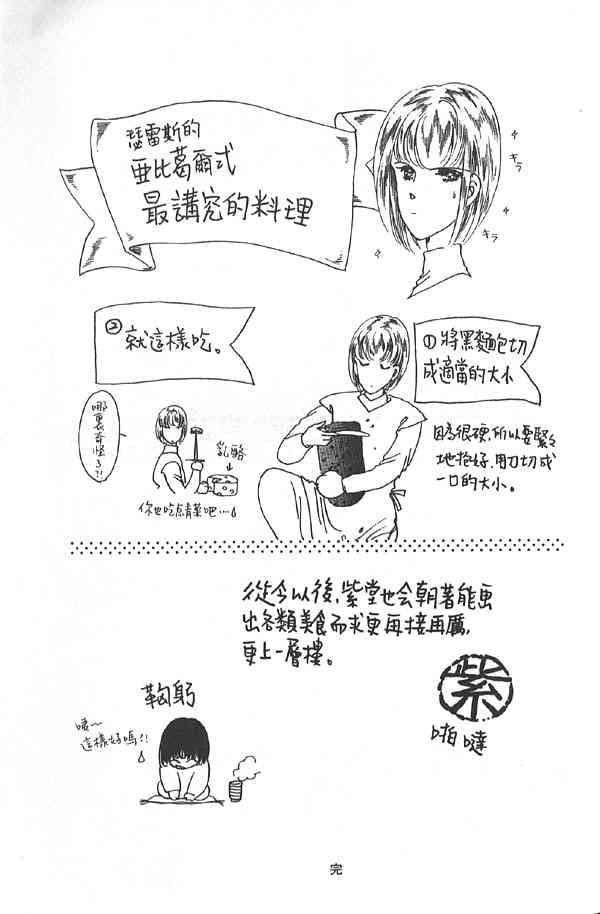 瑟雷斯的
亞比葛爾式
最講究的料理
キラ
キラ
①將黑麵包切
成適當的大小
因為很硬,所以要緊緊
地抱好,用刀切成
一口的大小。
②
就這樣吃。
哪裏奇怪
了?!
乳酪
你也吃点青菜吧…
從今以後,紫堂也会朝著能画
出各類美食而求更再接再厲,
更上一層樓。
紫
啪噠
鞠躬
噯~
這樣好嗎?!
完